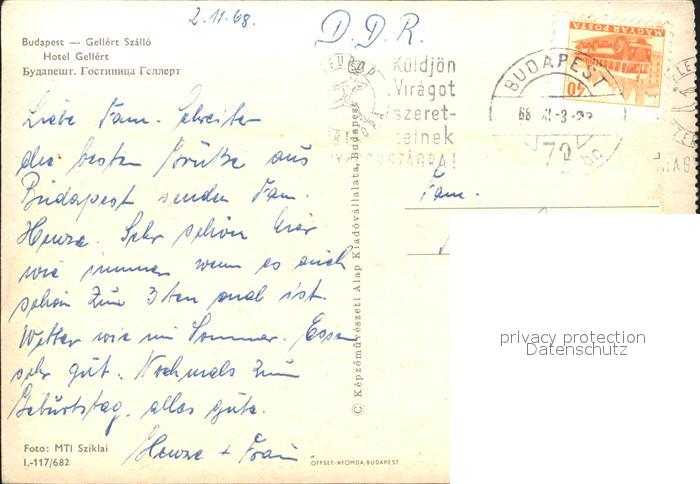 2.11.68.
D.D.R.
Budapest — Gellért Szálló
Hotel Gellért
Будапешт. Гостиница Геллерт
MAGYAR POSTA
40
Küldjön
Virágot
szeret-
teinek
BUDAPEST
72
Liebe Fam.
die besten Grüße aus
Budapest senden Fam.
Henze. Sehr schön hier
wie immer wenn es auch
schon zum 3ten mal ist.
Wetter wie im Sommer. Essen
sehr gut. Nochmals zum
Geburtstag alles gute.
Henze + Frau
Fam.
© Képzőművészeti Alap Kiadóvállalata, Budapest
privacy protection
Datenschutz
Foto: MTI Sziklai
I.-117/682
OFFSET-NYOMDA, BUDAPEST